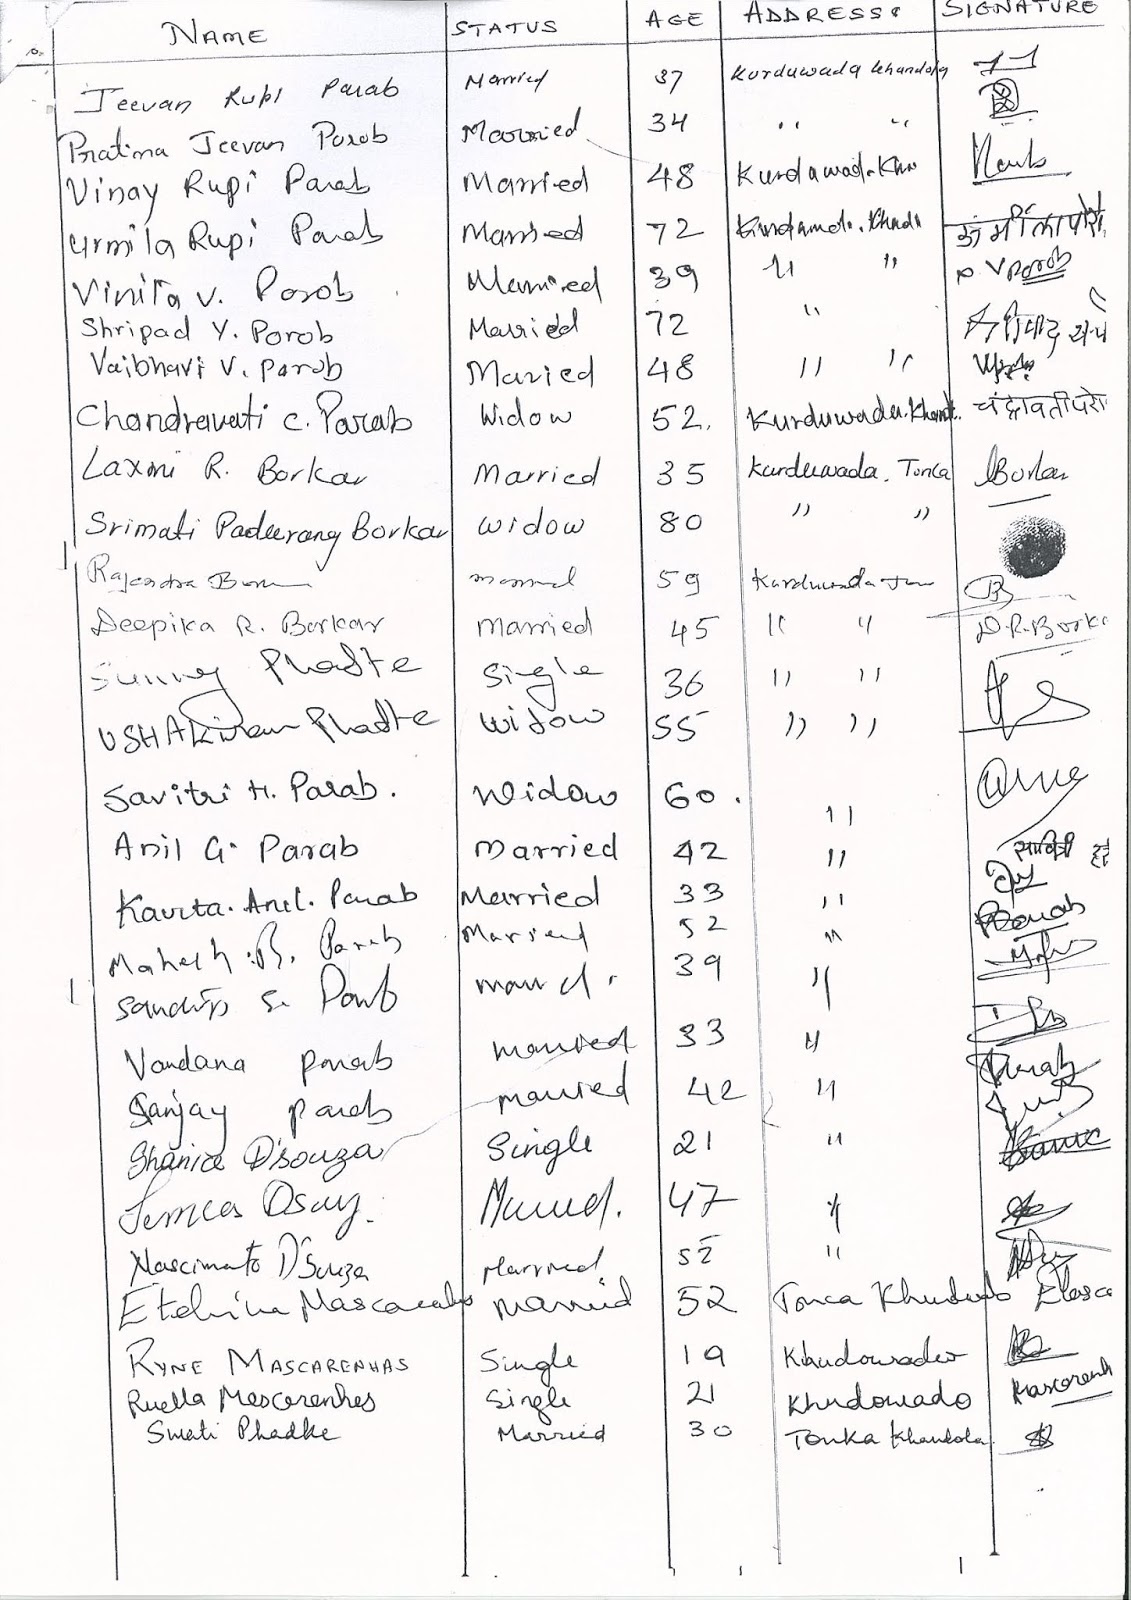 NAME STATUS AGE ADDRESS: SIGNATURE
Jeevan Rupi Parab Married 37 Kurduwada Khandola
Pratima Jeevan Porob Married 34 " "
Vinay Rupi Parab Married 48 Kurdawad.
Urmila Rupi Parab Married 72
Vinita V. Porob Married 39 " " V Porob
Shripad Y. Porob Married 72 "
Vaibhavi V. Porob Maried 48 " "
Chandravati C. Parab Widow 52. Kurduwada. चंद्रावती परो
Laxmi R. Borkar Married 35 Kurduwada. Tonca Borkar
Srimati Padurang Borkar widow 80 " "
Rajendra 59 Kurduwada
Deepika R. Borkar Married 45 " " D.R.Borka
Sunny Phadte Single 36 " "
USHAkiran Phadte widow 55 " "
Savitri H. Parab. Widow 60. "
Anil G. Parab Married 42 " सावित्री
Kavita. Anil. Parab Married 33 "
Mahesh. B. Parab Married 52 "
Sandip S. 39 "
Vandana parab married 33 "
Sanjay parab married 42 "
Shanice D'souza Single 21 "
47 "
Nascimato D'Souza Married 52 "
Mascarenhas Married 52 Tonca
RYNE MASCARENHAS Single 19 Khudowado
Ruella Mascarenhas Single 21 Khudowado Mascarenh
Swati Phadke Married 30 Tonka Khandola